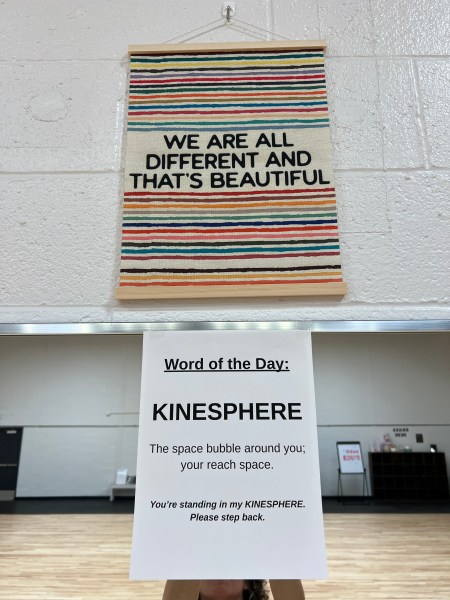 WE ARE ALL
DIFFERENT AND
THAT'S BEAUTIFUL
Word of the Day:
KINESPHERE
The space bubble around you;
your reach space.
You're standing in my KINESPHERE.
Please step back.